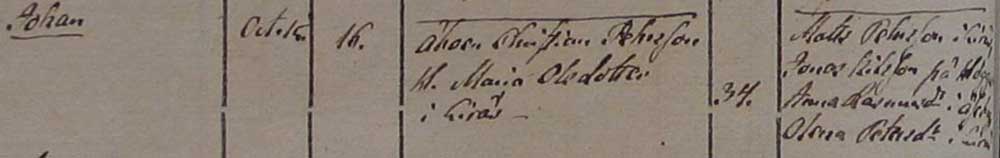 Johan
Octob.
16.
Åboen Christian Pehrson
H. Maria Olsdotter
i Kisäs
34.
Matts Pehrson i
Jonas Nilsson på
Anna Rasmusd.r i
Olena Petersd.r i